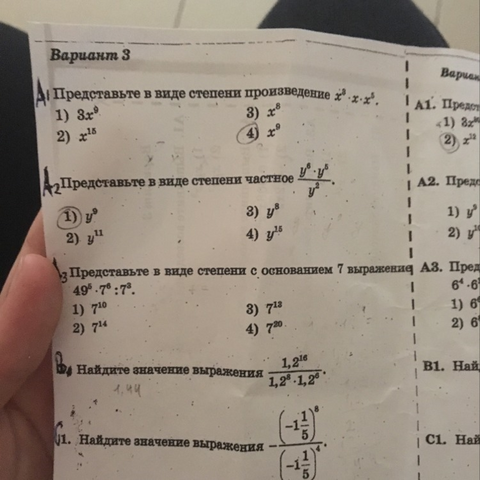 Вариант 3
A1 Представьте в виде степени произведение x³ · x · x⁵.
1) 3x⁹
2) x¹⁵
3) x⁸
4) x⁹
A2 Представьте в виде степени частное (y⁶ · y⁵)/y².
1) y⁹
2) y¹¹
3) y⁸
4) y¹⁵
A3 Представьте в виде степени с основанием 7 выражение
49⁵ · 7⁶ : 7³.
1) 7¹⁰
2) 7¹⁴
3) 7¹³
4) 7²⁰
B1 Найдите значение выражения 1,2¹⁶/(1,2⁸ · 1,2⁶).
1,44
C1. Найдите значение выражения −(−1 1/5)⁸/(−1 1/5)⁴.
A1.
2)
A2.
1)
2)
A3.
1)
2)
B1.
C1.